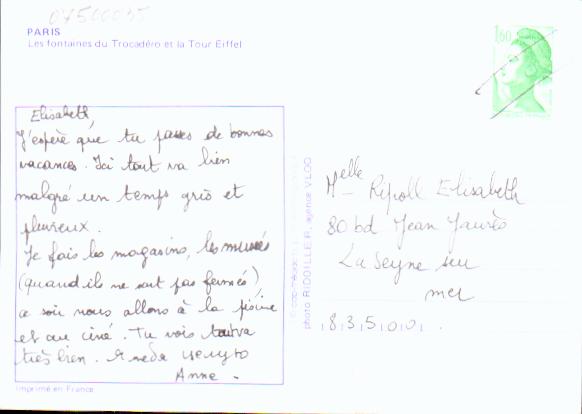 07500035
PARIS
Les fontaines du Trocadéro et la Tour Eiffel
1,60
Elisabeth,
J'espère que tu passes de bonnes
vacances. Ici tout va bien
malgré un temps gris et
pleuvreux.
Je fais les magasins, les musées
(quand ils ne sont pas fermés)
ce soir nous allons à la piscine
et au ciné. Tu vois tout va
très bien.
Anne.
Imprimé en France
photo RIDOILLER, agence VLOO
Melle Ripoll Elisabeth
80 bd Jean Jaurès
La Seyne sur
mer
83500.